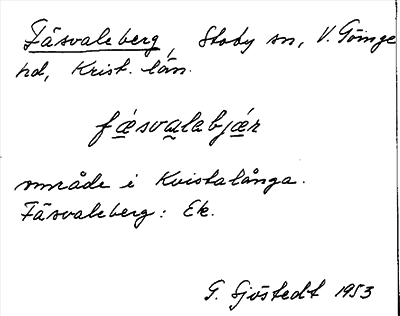 Fäsvaleberg, Stoby sn, V. Göinge
hd, Krist. län.
fæsvalabjær
område i Kvistalånga.
Fäsvaleberg: Ek.
G. Sjöstedt 1953